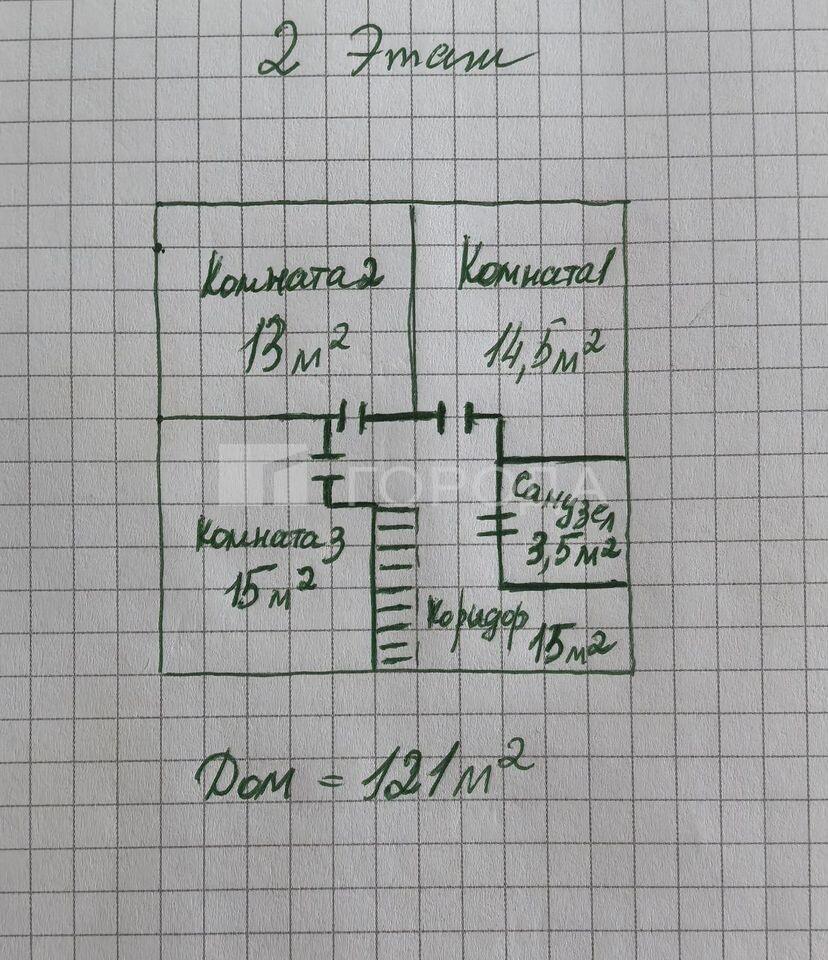 2 Этаж
Комната 2
13 м²
Комната 1
14,5 м²
ГОРОДА
Санузел
3,5 м²
Комната 3
15 м²
Коридор
15 м²
Дом = 121 м²